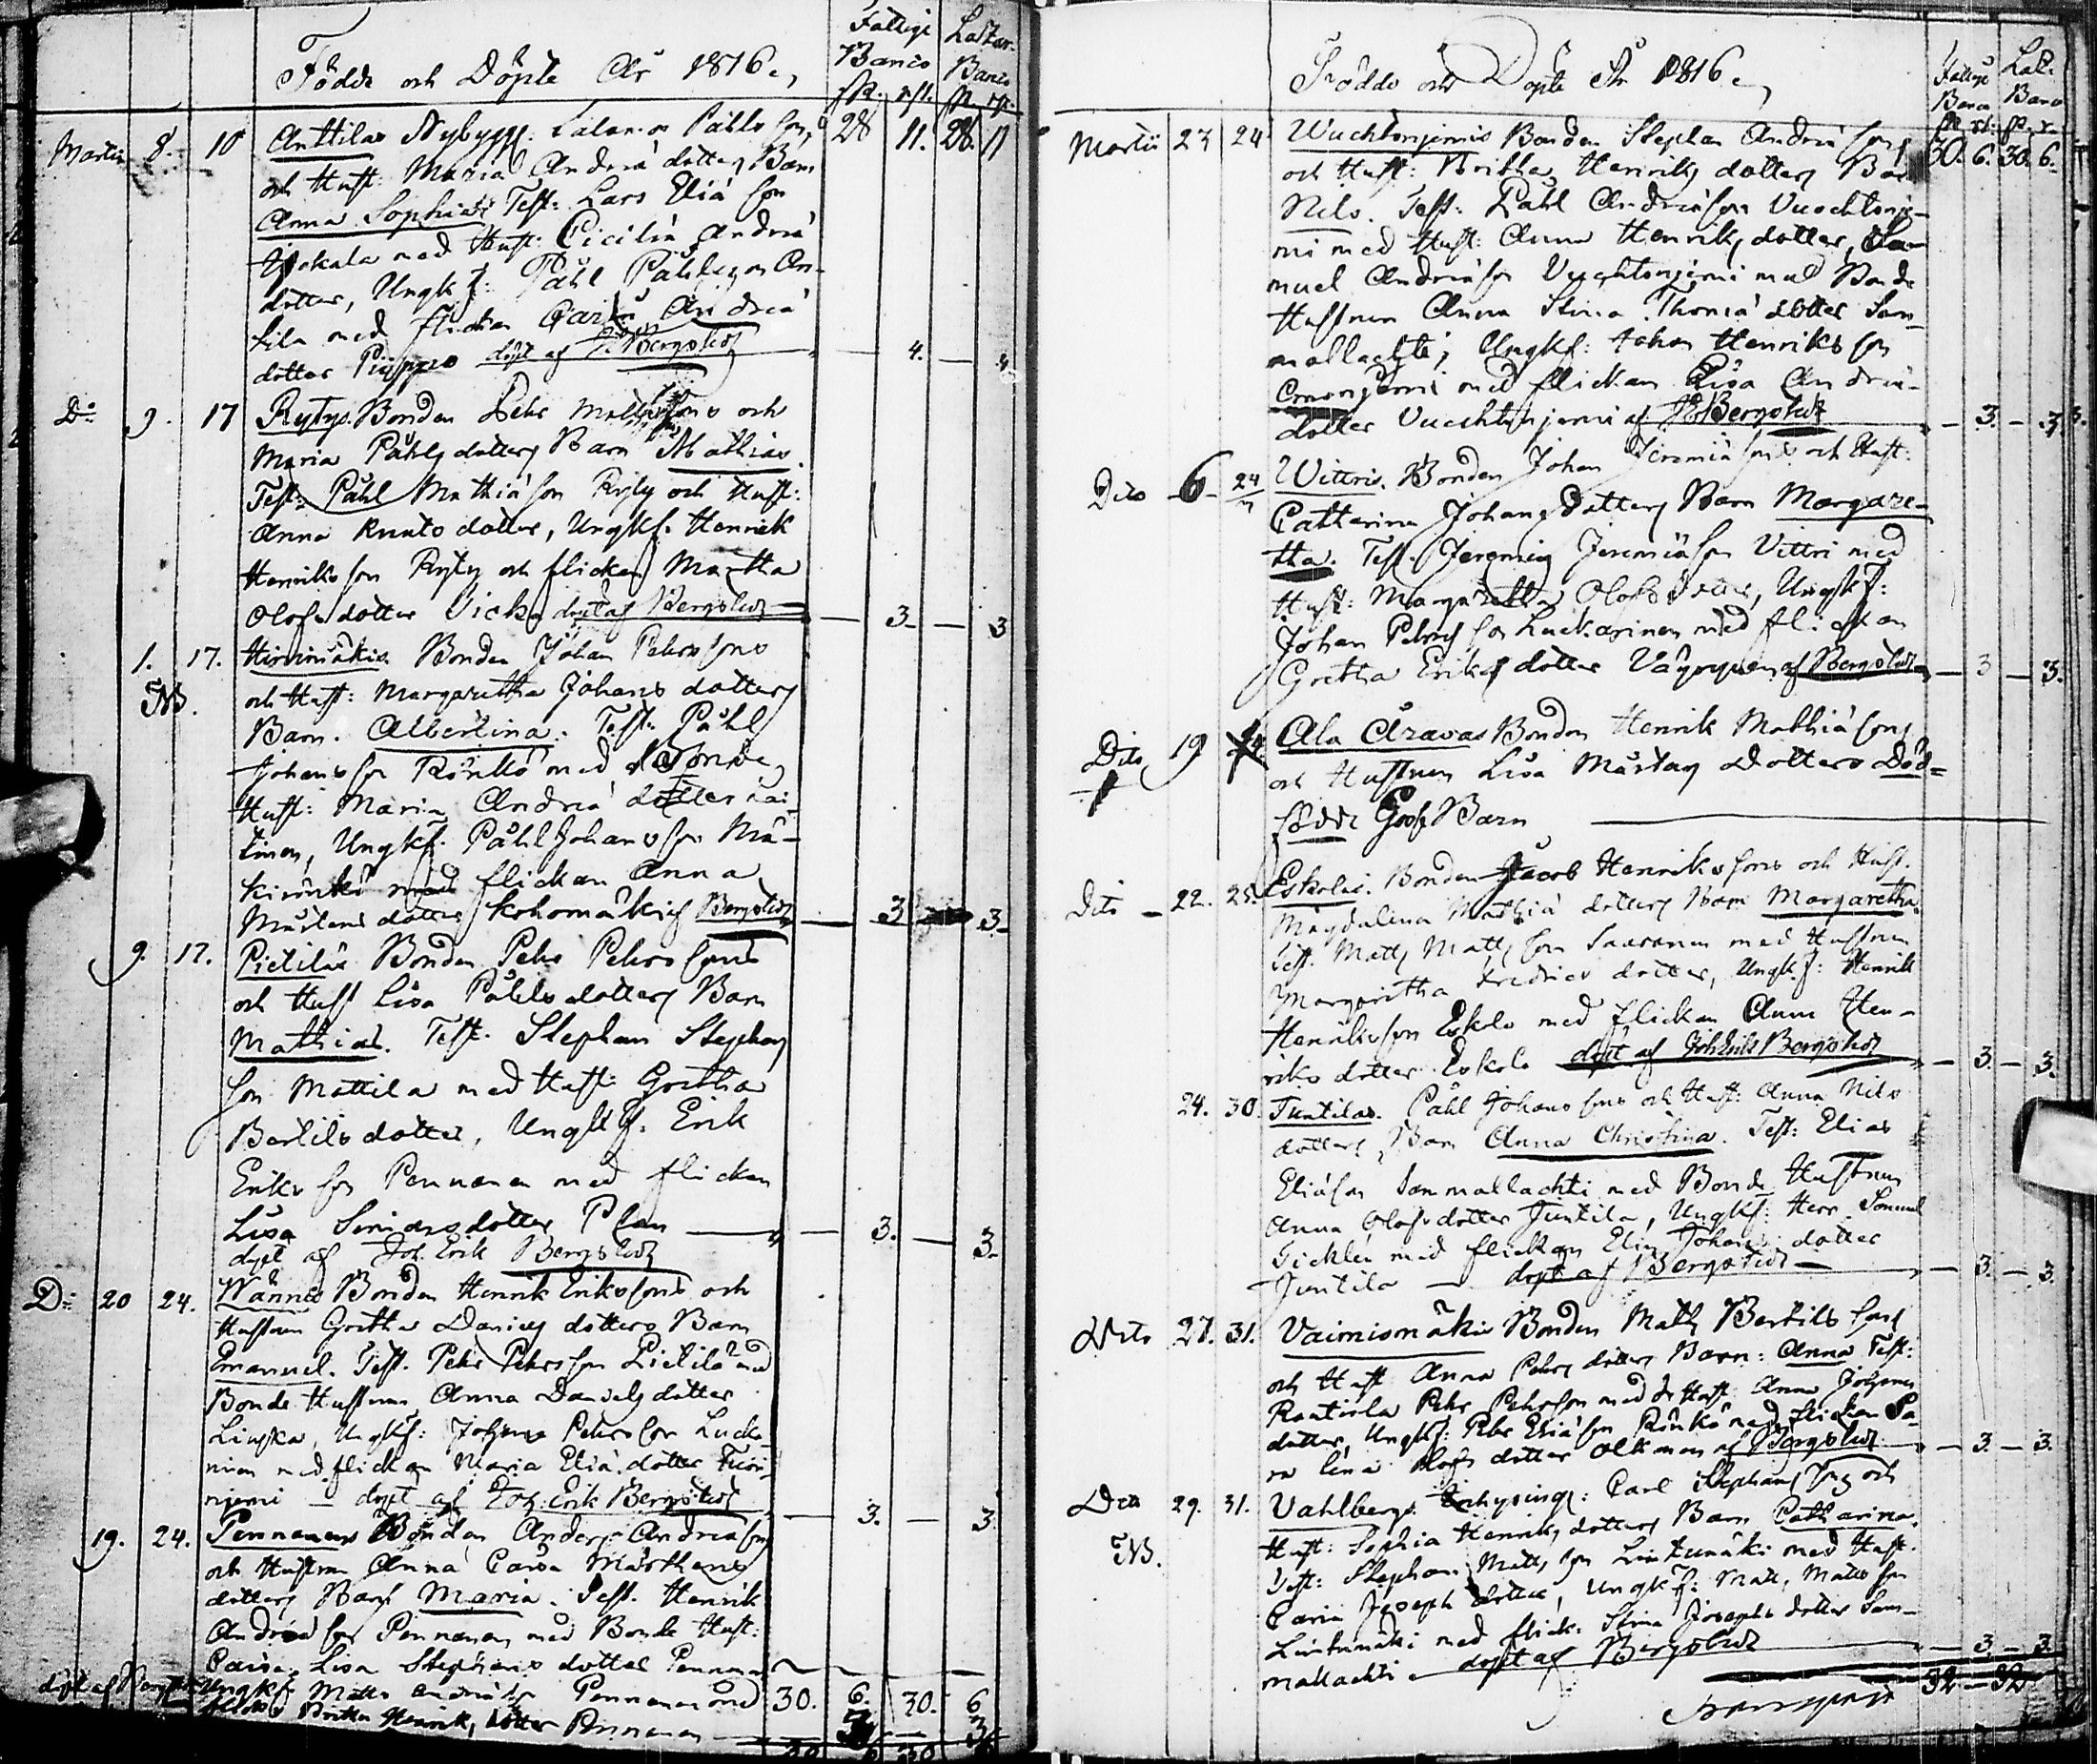 Födde och Döpte År 1816.
Fattige Banco
Banco
Martii 8. 10 Anttilas Nybygg: Påhls son,
och Hust: Maria Andreä dotters Barn
Anna Sophia. Test: Lars Eliä son
med Hust: Cicilia Andreä
dotter, Ungk: Påhl An-
tila med flickan Andreä
dotter Piippo döpt af Bergstedt
28 11. 28. 11
4. 4.
Do 9. 17 Rytys Bonden Pehr och
Maria Påhls dotters Barn Mathias.
Test: Påhl Mathiä son Ryty och Hust:
Anna Knuts dotter, Ungk: Henrik
Henriks son Ryty och flickan Martha
Olofs dotter döpt af Bergstedt
3. 3
1. 17. Hirsimäkis Bonden Johan Pehrs sons
NB.
och Hust: Margaretha Johans dotters
Barn. Albertina. Test: Påhl
Johans son Rönkö med Bonde
Hust: Maria Andreä dotter
tinen, Ungk: Påhl Johans son Mä-
med flickan Anna
Mårtens dotter Kohomäki af Bergstedt
3 3.
9. 17. Pietiläs Bonden Pehr Pehrs sons
och Hust Lisa Påhls dotters Barn
Mathias. Test: Stephan Stephans
son Mattila med Hust: Gretha
Bertils dotter, Ungk: Erik
Eriks son Pennanen med flickan
Lisa dotter
döpt af Joh. Erik Bergstedt
3. 3.
Do 20 24. Wännes Bonden Henrik Eriks sons och
Hustrun Gretha Daniels dotters Barn
Emanuel. Test: Pehr Pehrs son Pietilä med
Bonde Hustrun Anna Daniels dotter
Ungk: Pehrs son Lucka-
rinen med flickan Maria Eliä dotter
niemi döpt af Joh: Erik Bergstedt
3. 3.
19. 24. Pennanens Bonden Anders Andreä sons
och Hustrun Anna Caisa Mårthens
dotters Barn Maria. Test: Henrik
Andreä son Pennanen med Bonde Hust:
Caisa Lisa Stephans dotter Pennanen
döpt af Bergstedt Ungk: Matts Andreä son Pennanen med
Britha Henriks dotter Pennanen
30. 6. 30. 6
3 3
Födde och Döpte År 1816.
Fattige Banco
Banco
Martii 23 24 Wuchtonjemis Bonden Stephan Andreä sons
och Hust: Britha Henriks dotters Barn
Nils. Test: Påhl Andreä son Vuochtonje-
mi med Hust: Anna Henriks dotter, Sa-
muel Andreä son Vuochtonjemi med Bonde
Hustrun Anna Stina Thomä dotter Sam-
mallachti, Ungk: Johan Henriks son
med flickan Lisa Andreä
dotter Vuochtonjemi af Bergstedt
30. 6. 30. 6.
3. 3.
Dito 6. 24 Wittris. Bonden Johan Jeremiä sons och Hust:
Catharina Johans dotters Barn Margare-
tha. Test: Jeremias Jeremiä son Vittri med
Hust: Margaretha Olofs dotter, Ungk:
Johan Pehrs son Luckarinen med flickan
Gretha Eriks dotter Väyrynen af Bergstedt
3 3.
Dito 19 Ala Äravas Bonden Henrik Mathiä sons
och Hustrun Lisa Mårtens Dotters Död-
födde Barn
Dito 22. 25. Eskolas. Bonden Jacob Henriks sons och Hust.
Magdalena Mathiä dotters Barn Margaretha.
Test. Matts Matts son Saaranen med Hustrun
Margaretha Fredrics dotter, Ungk: Henrik
Henriks son Eskola med flickan Anna Hen-
riks dotter Eskola döpt af Joh Erik Bergstedt
3. 3.
24. 30. Juntilas. Påhl Johans sons och Hust: Anna Nils
dotters Barn Anna Christina. Test: Elias
Eliä son Sammallachti med Bonde Hustrun
Anna Olofs dotter Juntila, Ungk: Herr Samuel
Ticklén med flickan Elin Johans dotter
Juntila döpt af Bergstedt
3. 3.
Dito 27. 31. Vainiomäkis Bonden Matts Bertils sons
och Hust Anna Pehrs dotters Barn: Anna Test:
Rautiola Pehr Pehrsson med Hust: Anna Johans
dotter, Ungk: Pehr Eliä son Rönkö med flickan Sa-
ra Lena Olofs dotter Olkonen af Bergstedt
3. 3.
Dito 29. 31. Vahlbergs Inhysings: Carl Stephans sons och
NB.
Hust: Sophia Henriks dotters Barn Catharina.
Test: Stephan Matts son Lintumäki med Hust.
Carin Joseph dotter, Ungk: Matts Matts son
Lintumäki med flick. Stina Josephs dotter Sam-
mallachti döpt af Bergstedt
3. 3
32 32